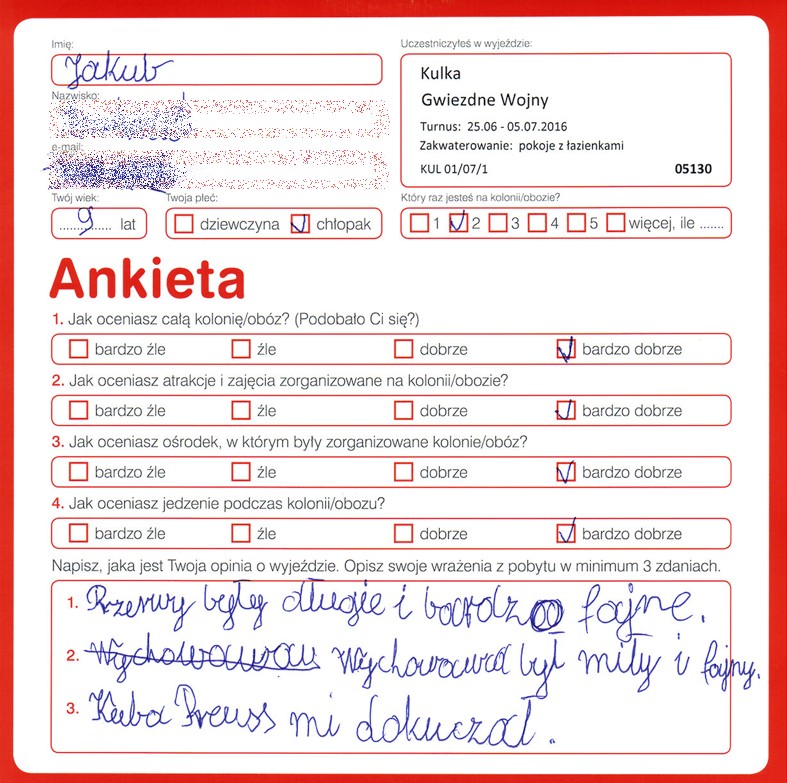 Imię:
Jakub
Nazwisko:
e-mail:
Uczestniczyłeś w wyjeździe:
Kulka
Gwiezdne Wojny
Turnus: 25.06 - 05.07.2016
Zakwaterowanie: pokoje z łazienkami
KUL 01/07/1 05130
Twój wiek:
9 lat
Twoja płeć:
dziewczyna chłopak
Który raz jesteś na kolonii/obozie?
1 2 3 4 5 więcej, ile .......
Ankieta
1. Jak oceniasz całą kolonię/obóz? (Podobało Ci się?)
bardzo źle źle dobrze bardzo dobrze
2. Jak oceniasz atrakcje i zajęcia zorganizowane na kolonii/obozie?
bardzo źle źle dobrze bardzo dobrze
3. Jak oceniasz ośrodek, w którym były zorganizowane kolonie/obóz?
bardzo źle źle dobrze bardzo dobrze
4. Jak oceniasz jedzenie podczas kolonii/obozu?
bardzo źle źle dobrze bardzo dobrze
Napisz, jaka jest Twoja opinia o wyjeździe. Opisz swoje wrażenia z pobytu w minimum 3 zdaniach.
1. Przerwy były długie i bardzo fajne.
2. Wychowawca był miły i fajny.
3. Kuba Preuss mi dokuczał.